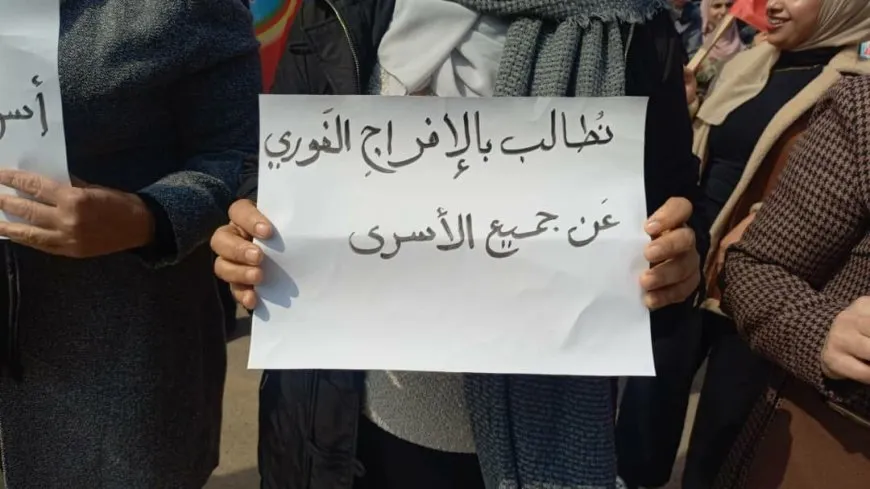 نُطالب بالإفراجِ الفَوري
عَن جميع الأسرى